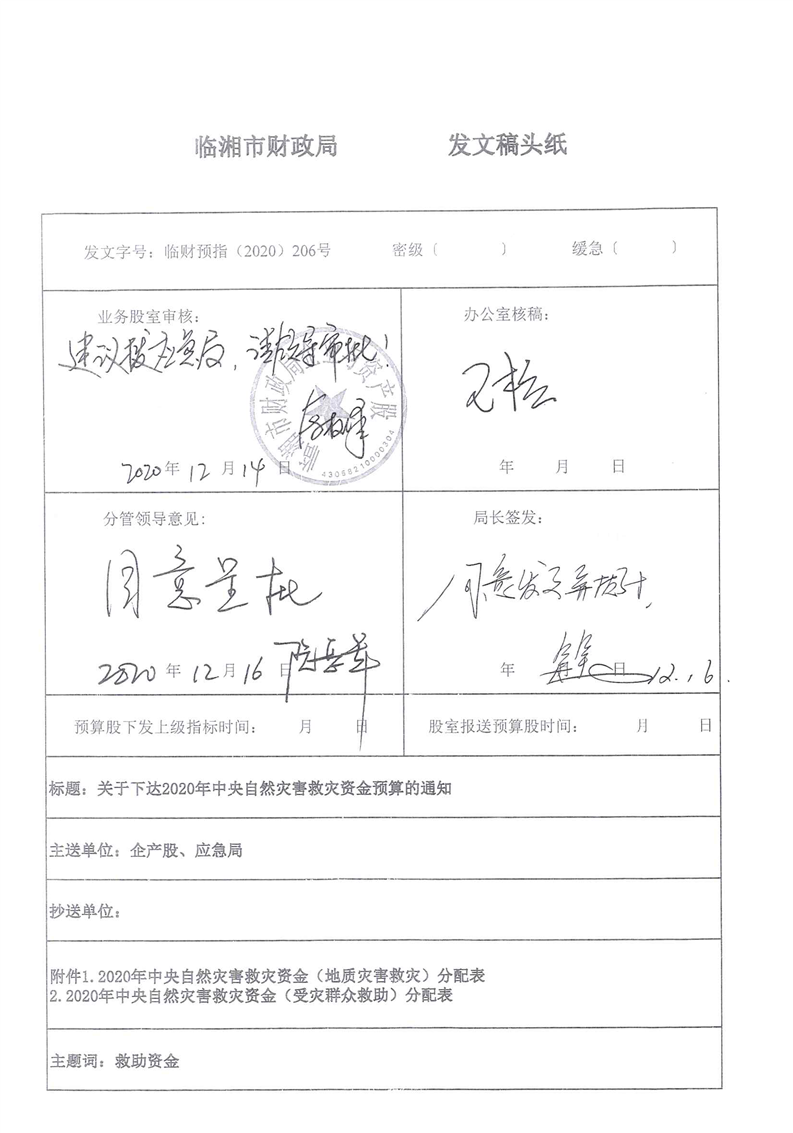 临湘市财政局 发文稿头纸
发文字号：临财预指（2020）206号 密级〔 〕 缓急〔 〕
业务股室审核：
建议拨应急局，请领导审批！
2020年12月14日
临湘市财政局 资产股
43068210000304
办公室核稿：
年 月 日
分管领导意见：
同意呈批
2020年12月16日
局长签发：
同意发文并拨付
年 日 12.16.
预算股下发上级指标时间： 月 日
股室报送预算股时间： 月 日
标题：关于下达2020年中央自然灾害救灾资金预算的通知
主送单位：企产股、应急局
抄送单位：
附件1.2020年中央自然灾害救灾资金（地质灾害救灾）分配表
2.2020年中央自然灾害救灾资金（受灾群众救助）分配表
主题词：救助资金